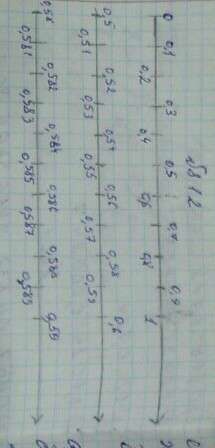 №812
0 0,1 0,2 0,3 0,4 0,5 0,6 0,7 0,8 0,9 1
0,5 0,51 0,52 0,53 0,54 0,55 0,56 0,57 0,58 0,59 0,6
0,58 0,581 0,582 0,583 0,584 0,585 0,586 0,587 0,588 0,589 0,59